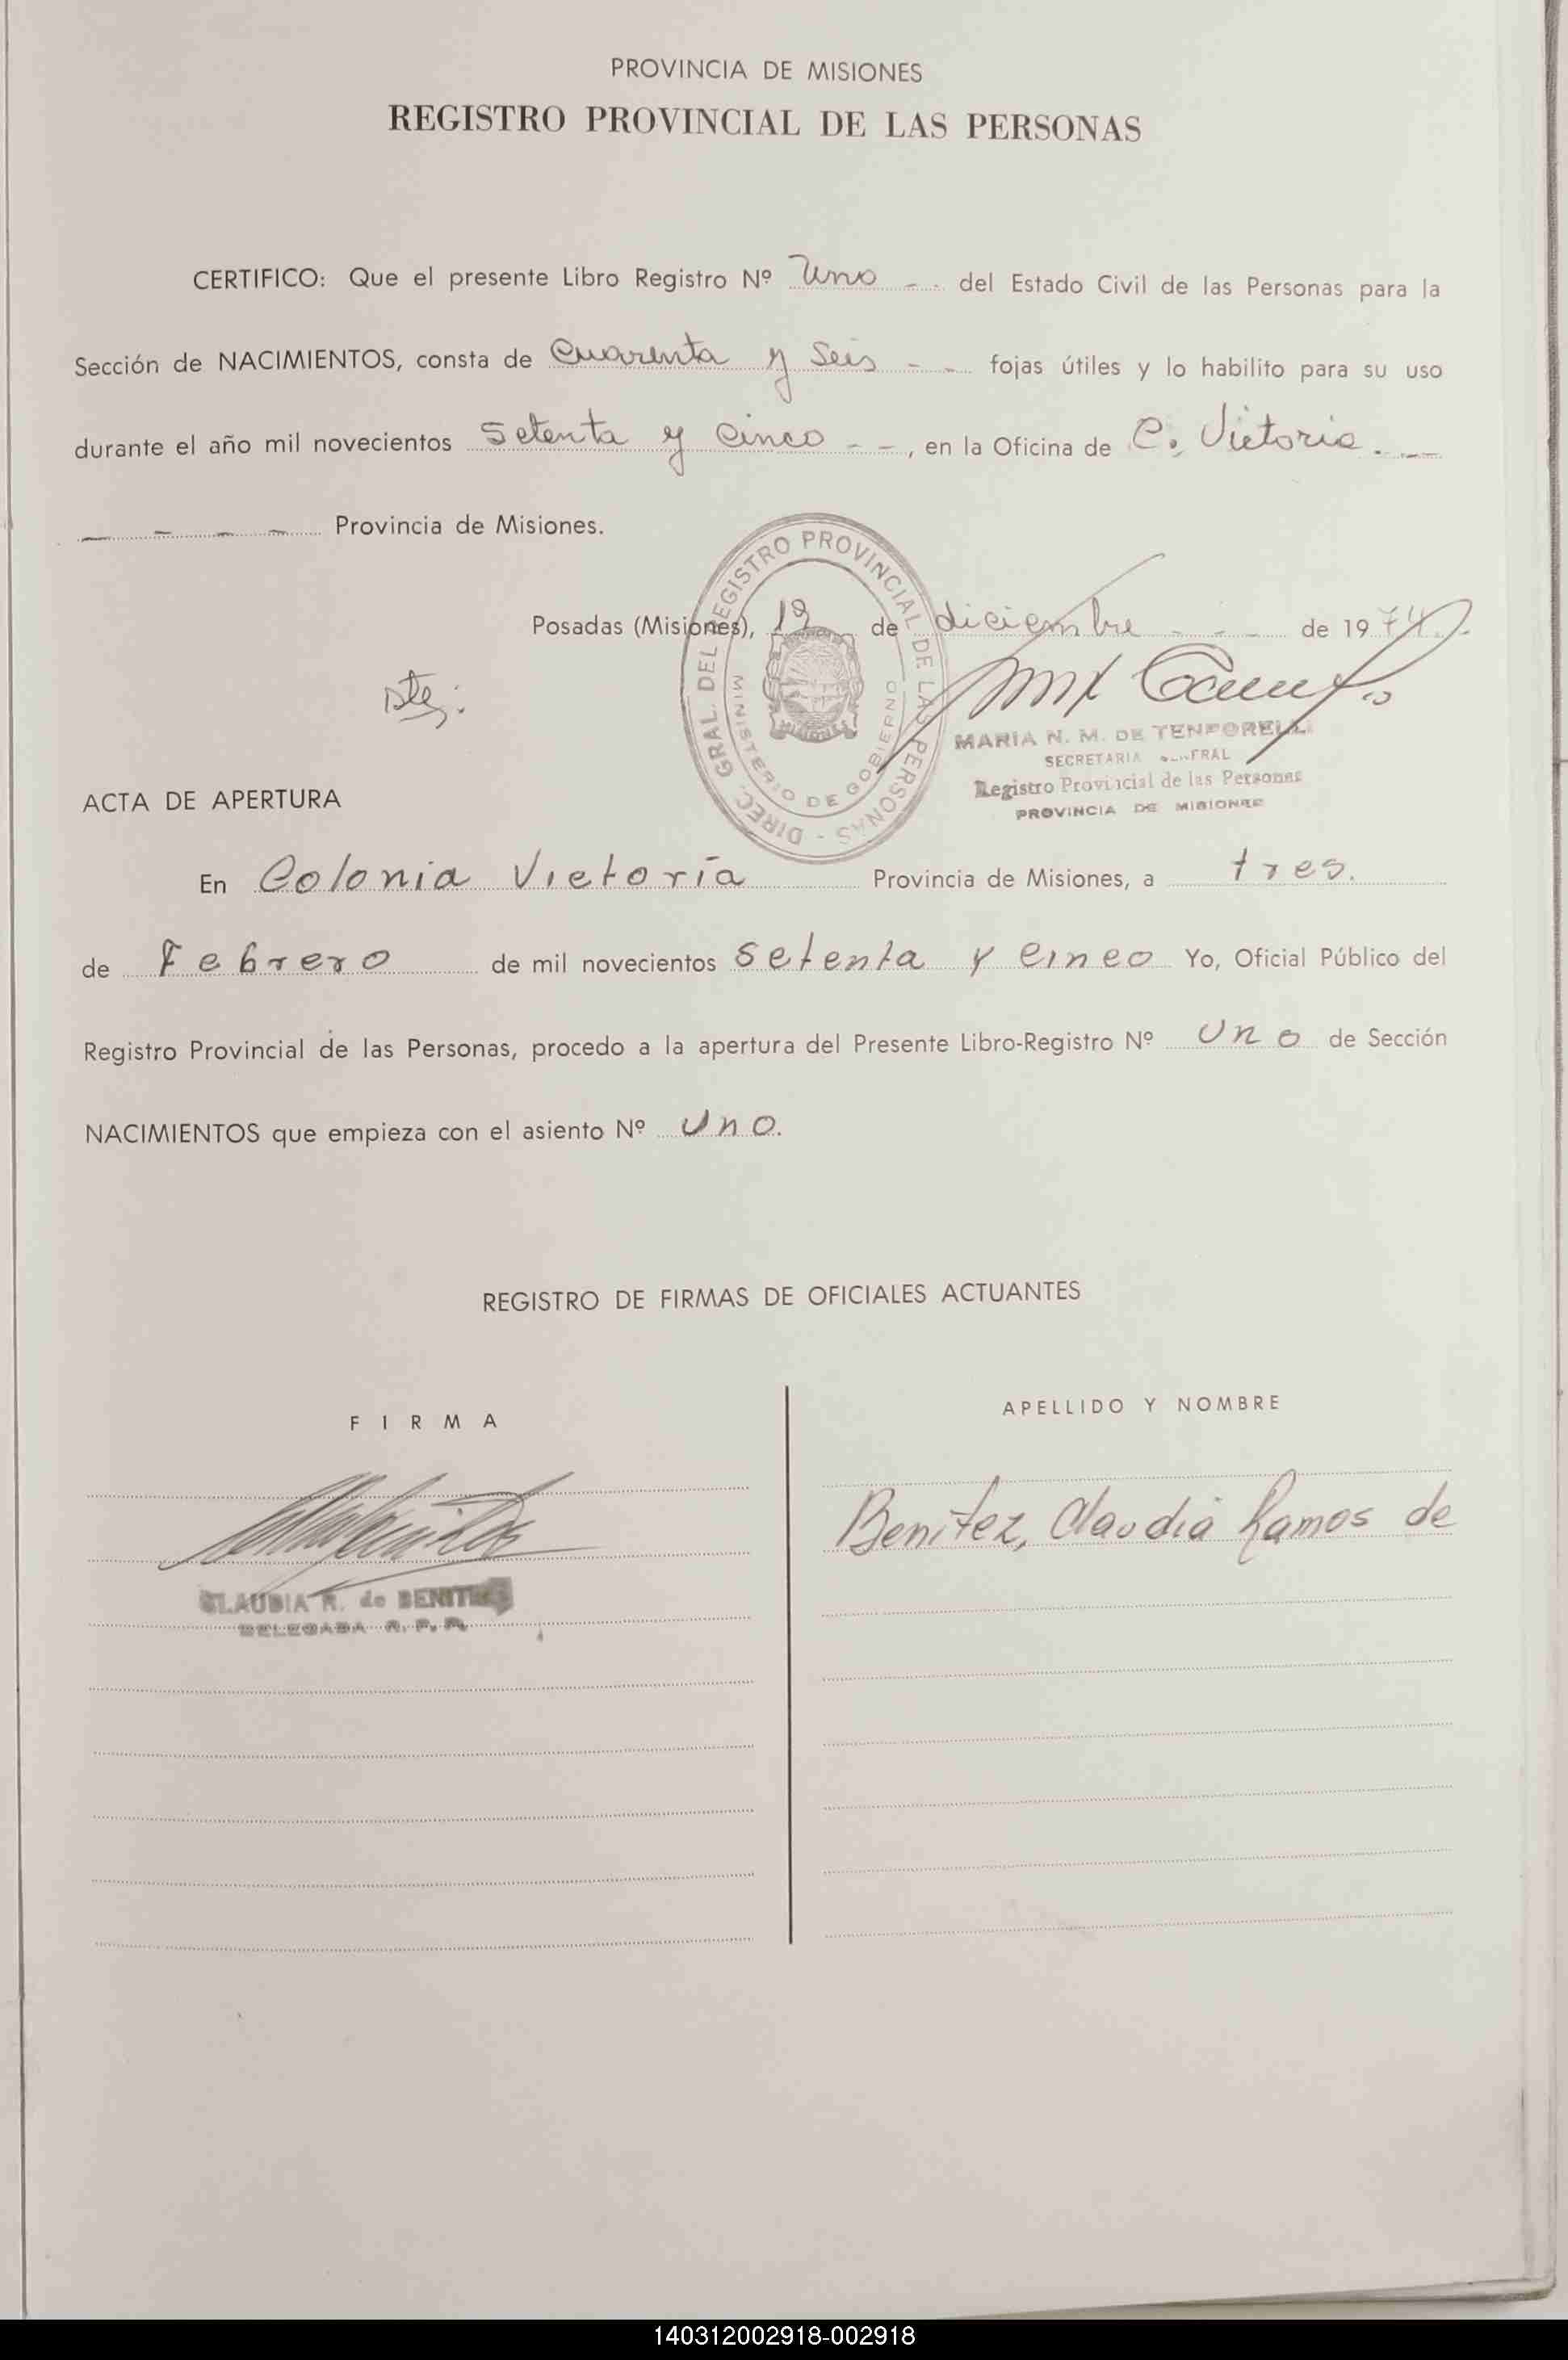 PROVINCIA DE MISIONES
REGISTRO PROVINCIAL DE LAS PERSONAS
CERTIFICO: Que el presente Libro Registro Nº Uno - - del Estado Civil de las Personas para la
Sección de NACIMIENTOS, consta de Cuarenta y Seis - - fojas útiles y lo habilito para su uso
durante el año mil novecientos Setenta y Cinco - - , en la Oficina de C. Victoria. -
- - - - Provincia de Misiones.
Posadas (Misiones), 19 de diciembre - - - de 1974.-
DIREC. GRAL. DEL REGISTRO PROVINCIAL DE LAS PERSONAS -
MINISTERIO DE GOBIERNO
MISIONES
MARIA N. M. DE
SECRETARIA
Registro Provincial de las Personas
PROVINCIA DE MISIONES
ACTA DE APERTURA
En Colonia Victoria Provincia de Misiones, a tres.
de Febrero de mil novecientos setenta y cinco Yo, Oficial Público del
Registro Provincial de las Personas, procedo a la apertura del Presente Libro-Registro Nº uno de Sección
NACIMIENTOS que empieza con el asiento Nº uno.
REGISTRO DE FIRMAS DE OFICIALES ACTUANTES
FIRMA
APELLIDO Y NOMBRE
Benitez, Claudia Ramos de
CLAUDIA R. de BENITEZ
DELEGADA R. P. P.
140312002918-002918